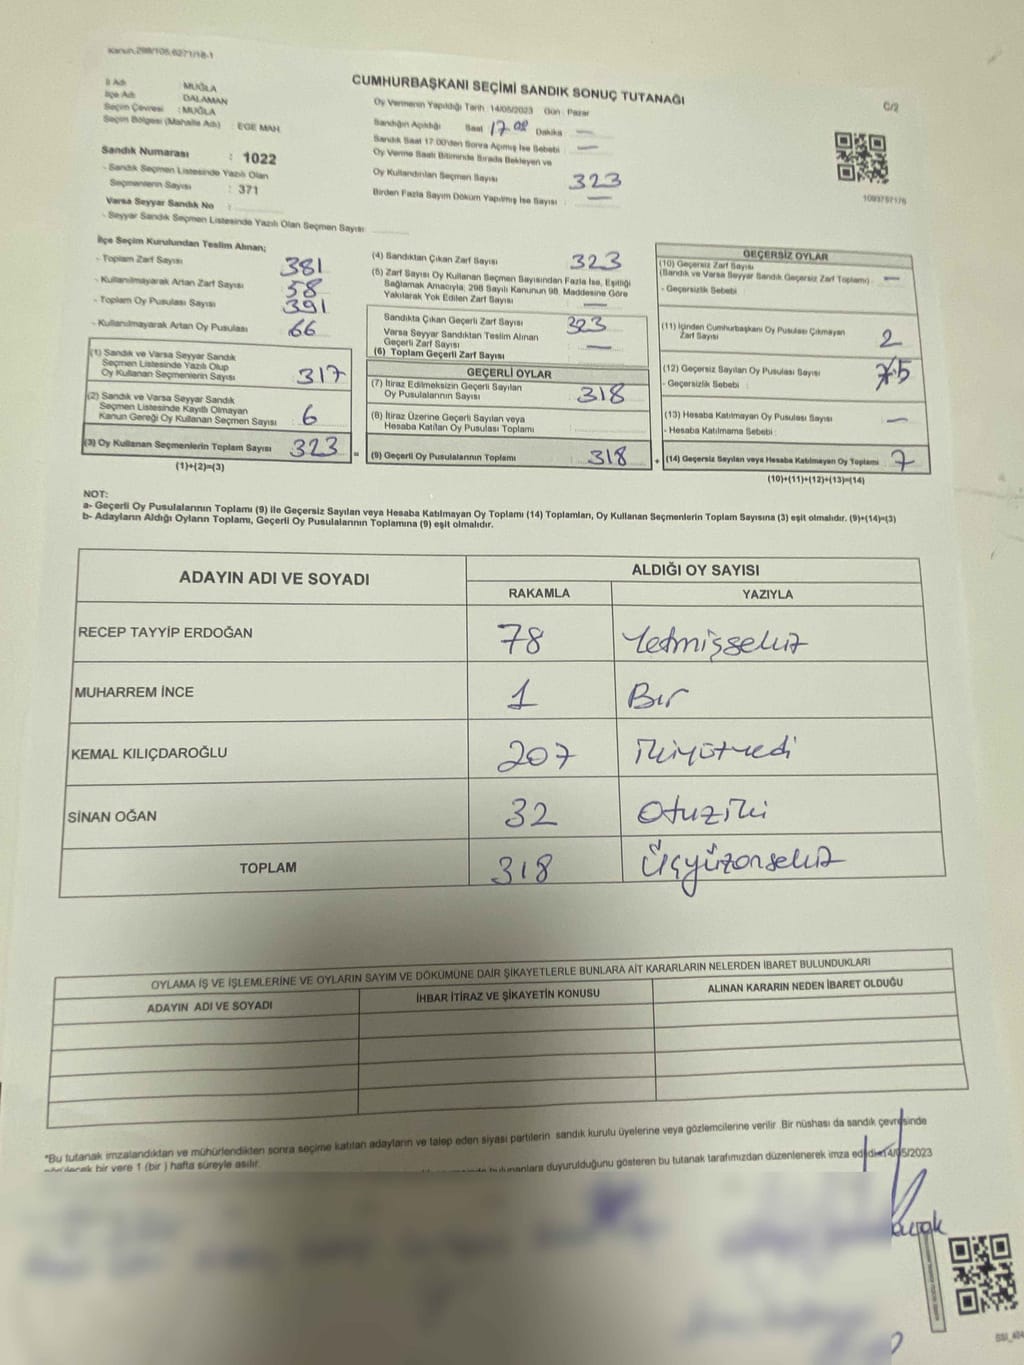 Kanun:298/105,6271/18-1
CUMHURBAŞKANI SEÇİMİ SANDIK SONUÇ TUTANAĞI
C/2
İl Adı : MUĞLA
İlçe Adı : DALAMAN
Seçim Çevresi : MUĞLA
Seçim Bölgesi (Mahalle Adı) : EGE MAH.
Sandık Numarası : 1022
- Sandık Seçmen Listesinde Yazılı Olan
Seçmenlerin Sayısı : 371
Varsa Seyyar Sandık No :
- Seyyar Sandık Seçmen Listesinde Yazılı Olan Seçmen Sayısı:
Oy Vermenin Yapıldığı Tarih :14/05/2023 Gün : Pazar
Sandığın Açıldığı Saat 17 08 Dakika —
Sandık Saat 17.00'den Sonra Açılmış İse Sebebi —
Oy Verme Saati Bitiminde Sırada Bekleyen ve
Oy Kullandırılan Seçmen Sayısı 323
Birden Fazla Sayım Döküm Yapılmış İse Sayısı : —
1093757176
İlçe Seçim Kurulundan Teslim Alınan;
- Toplam Zarf Sayısı 381
- Kullanılmayarak Artan Zarf Sayısı 58
- Toplam Oy Pusulası Sayısı 391
- Kullanılmayarak Artan Oy Pusulası 66
(1) Sandık ve Varsa Seyyar Sandık
Seçmen Listesinde Yazılı Olup
Oy Kullanan Seçmenlerin Sayısı 317
(2) Sandık ve Varsa Seyyar Sandık
Seçmen Listesinde Kayıtlı Olmayan
Kanun Gereği Oy Kullanan Seçmen Sayısı 6
(3) Oy Kullanan Seçmenlerin Toplam Sayısı 323
(1)+(2)=(3)
(4) Sandıktan Çıkan Zarf Sayısı 323
(5) Zarf Sayısı Oy Kullanan Seçmen Sayısından Fazla İse, Eşitliği
Sağlamak Amacıyla; 298 Sayılı Kanunun 98. Maddesine Göre
Yakılarak Yok Edilen Zarf Sayısı —
Sandıkta Çıkan Geçerli Zarf Sayısı 323
Varsa Seyyar Sandıktan Teslim Alınan
Geçerli Zarf Sayısı —
(6) Toplam Geçerli Zarf Sayısı
GEÇERLİ OYLAR
(7) İtiraz Edilmeksizin Geçerli Sayılan
Oy Pusulalarının Sayısı : 318
(8) İtiraz Üzerine Geçerli Sayılan veya
Hesaba Katılan Oy Pusulası Toplamı
= (9) Geçerli Oy Pusulalarının Toplamı : 318
GEÇERSİZ OYLAR
(10) Geçersiz Zarf Sayısı
(Sandık ve Varsa Seyyar Sandık Geçersiz Zarf Toplamı) : —
- Geçersizlik Sebebi :
(11) İçinden Cumhurbaşkanı Oy Pusulası Çıkmayan
Zarf Sayısı 2
(12) Geçersiz Sayılan Oy Pusulası Sayısı 5
- Geçersizlik Sebebi :
(13) Hesaba Katılmayan Oy Pusulası Sayısı —
- Hesaba Katılmama Sebebi :
+ (14) Geçersiz Sayılan veya Hesaba Katılmayan Oy Toplamı 7
(10)+(11)+(12)+(13)=(14)
NOT:
a- Geçerli Oy Pusulalarının Toplamı (9) ile Geçersiz Sayılan veya Hesaba Katılmayan Oy Toplamı (14) Toplamları, Oy Kullanan Seçmenlerin Toplam Sayısına (3) eşit olmalıdır. (9)+(14)=(3)
b- Adayların Aldığı Oyların Toplamı, Geçerli Oy Pusulalarının Toplamına (9) eşit olmalıdır.
ADAYIN ADI VE SOYADI ALDIĞI OY SAYISI
RAKAMLA YAZIYLA
RECEP TAYYİP ERDOĞAN 78 Yetmişsekiz
MUHARREM İNCE 1 Bir
KEMAL KILIÇDAROĞLU 207 İkiyüzyedi
SİNAN OĞAN 32 Otuziki
TOPLAM 318 Üçyüzonsekiz
OYLAMA İŞ VE İŞLEMLERİNE VE OYLARIN SAYIM VE DÖKÜMÜNE DAİR ŞİKAYETLERLE BUNLARA AİT KARARLARIN NELERDEN İBARET BULUNDUKLARI
ADAYIN ADI VE SOYADI İHBAR İTİRAZ VE ŞİKAYETİN KONUSU ALINAN KARARIN NEDEN İBARET OLDUĞU
*Bu tutanak imzalandıktan ve mühürlendikten sonra seçime katılan adayların ve talep eden siyasi partilerin sandık kurulu üyelerine veya gözlemcilerine verilir. Bir nüshası da sandık çevresinde
bir yere 1 (bir ) hafta süreyle asılır.
duyurulduğunu gösteren bu tutanak tarafımızdan düzenlenerek imza edildi.14/05/2023